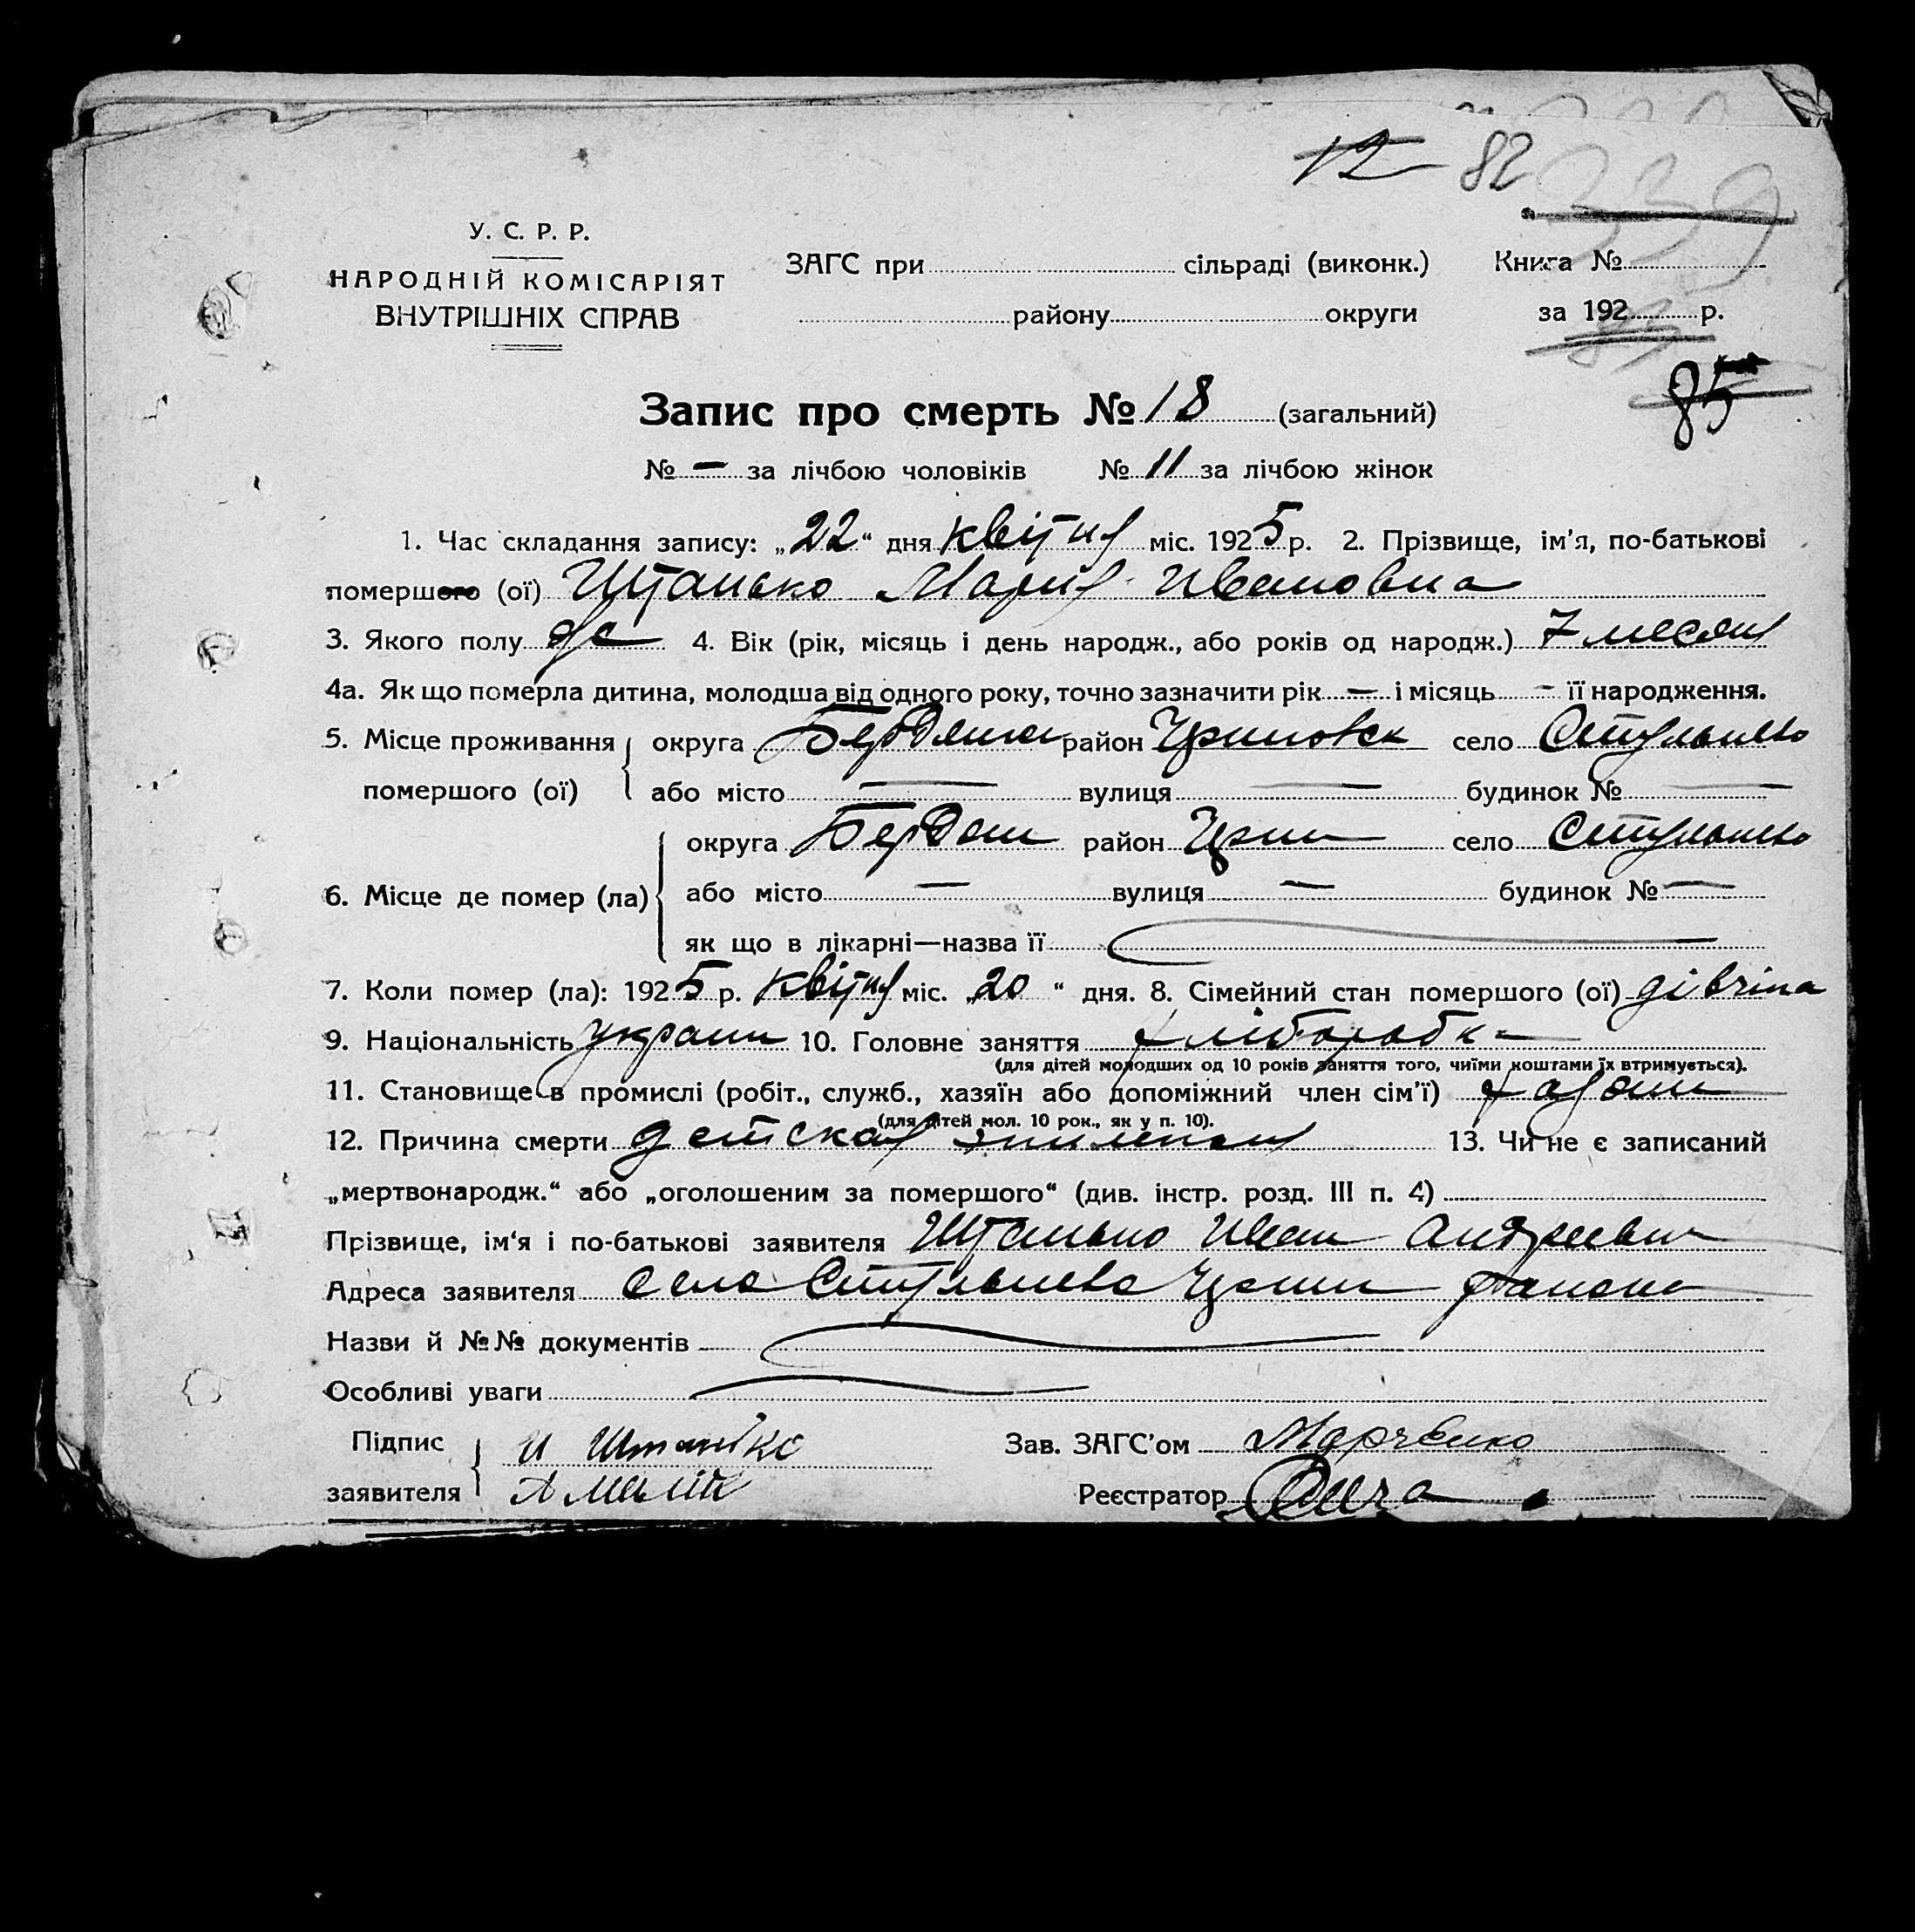 12 82
339
У. С. Р. Р.
НАРОДНІЙ КОМІСАРІЯТ
ВНУТРІШНІХ СПРАВ
ЗАГС при сільраді (виконк.) Книга №
району округи за 192 р.
85
Запис про смерть № 18 (загальний)
№ — за лічбою чоловіків № 11 за лічбою жінок
1. Час складання запису: „22“ дня квітня міс. 1925 р. 2. Прізвище, ім'я, по-батькові
помершого (ої) Штанько Мария Ивановна
3. Якого полу ж 4. Вік (рік, місяць і день народж., або років од народж.) 7 месяц
4а. Як що померла дитина, молодша від одного року, точно зазначити рік — і місяць - її народження.
5. Місце проживання округа Бердянск район село Стульнево
помершого (ої) або місто — вулиця — будинок № —
округа Бердян район село Стульнево
6. Місце де помер (ла) або місто — вулиця — будинок № —
як що в лікарні—назва її
7. Коли помер (ла): 1925 р. квітня міс. „20“ дня. 8. Сімейний стан помершого (ої) дівчина
9. Національність украин 10. Головне заняття хліборобка
(для дітей молодших од 10 років заняття того, чиїми коштами їх втримується).
11. Становище в промислі (робіт., служб., хазяїн або допоміжний член сім'ї) хазяин
(для дітей мол. 10 рок., як у п. 10).
12. Причина смерти детская эпилепсия 13. Чи не є записаний
„мертвонародж.“ або „оголошеним за помершого“ (див. інстр. розд. III п. 4)
Прізвище, ім'я і по-батькові заявителя Штанько Иван Андреевич
Адреса заявителя село Стульнево района
Назви й №№ документів
Особливі уваги
Підпис И Штанько Зав. ЗАГС'ом Марченко
заявителя Реєстратор